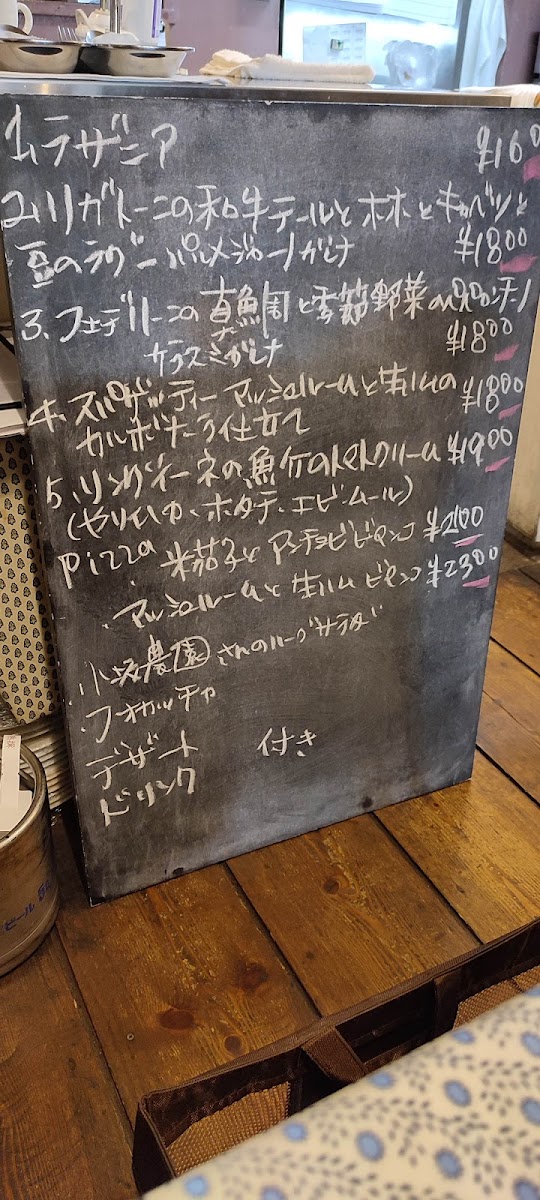 1. ラザニア ¥160
2. リガトーニの和牛テールとホホとキャベツと
豆のラグー パルメジャーノがレナ ¥1800
3. フェデリーニの真鯛と季節野菜の
カラスミがレナ ¥1800
4. スパゲッティー マッシュルームと生ハムの ¥1800
カルボナーラ仕立て
5. リングイーネの魚介のトマトクリーム ¥1900
(ヤリイカ、ホタテ、エビ、ムール)
pizza 米茄子とアンチョビ ビアンコ ¥2100
・マッシュルームと生ハム ビアンコ ¥2300
・小坂農園さんのハーブサラダ
・フォカッチャ
デザート 付き
ドリンク
ビール